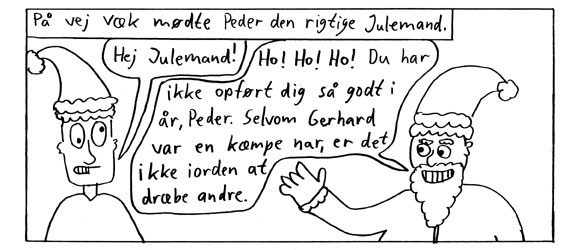 På vej væk mødte Peder den rigtige Julemand.
Hej Julemand!
Ho! Ho! Ho! Du har
ikke opført dig så godt i
år, Peder. Selvom Gerhard
var en kæmpe nar, er det
ikke iorden at
dræbe andre.